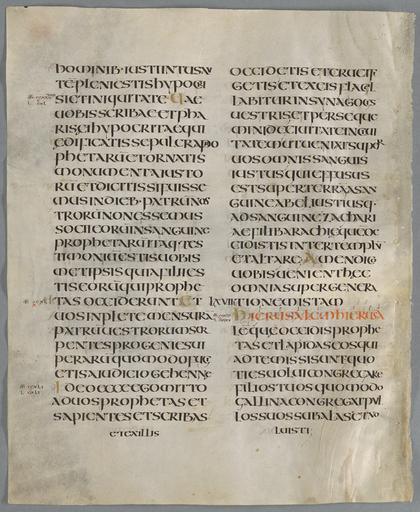 hominib· iusti intus au
tē pleni estis hypocri
si et iniquitate Uae
uobis scribae et pha
risei hypocritae qui
edificatis sepulcra pro
phetarū et ornatis
monumenta iusto
rū et dicitis si fuisse
mus in dieb· patrū nos
trorū non essemus
socii eorū in sanguine
prophetarū itaq· tes
timonio estis uobis
metipsis quia filii es
tis eorū qui prophe
tas occiderunt Et
uos inplete mensurā
patrū uestrorū ser
pentes progenies ui
perarū quomodo fugi
etis a iudicio gehennę
Ideo ecce ego mitto
ad uos prophetas et
sapientes et scribas
et ex illis
occidetis et crucifi
getis et ex eis flagel
labitis in synagogis
uestris et perseque
mini de ciuitate in ciui
tatē ut ueniat super
uos omnis sanguis
iustus qui effusus
est super terrā a san
guine abel iusti usq·
ad sanguinē zachari
ae filii barachie quē oc
cidistis inter templū
et altare· Amen dico
uobis uenient hęc
omnia super genera
tionem istam
Hierusalem hierusa
lē quę occidis prophe
tas et lapidas eos qui
ad te missi sunt quo
ties uolui congregare
filios tuos quomodo
gallina congregat pul
los suos sub alas et no
luisti